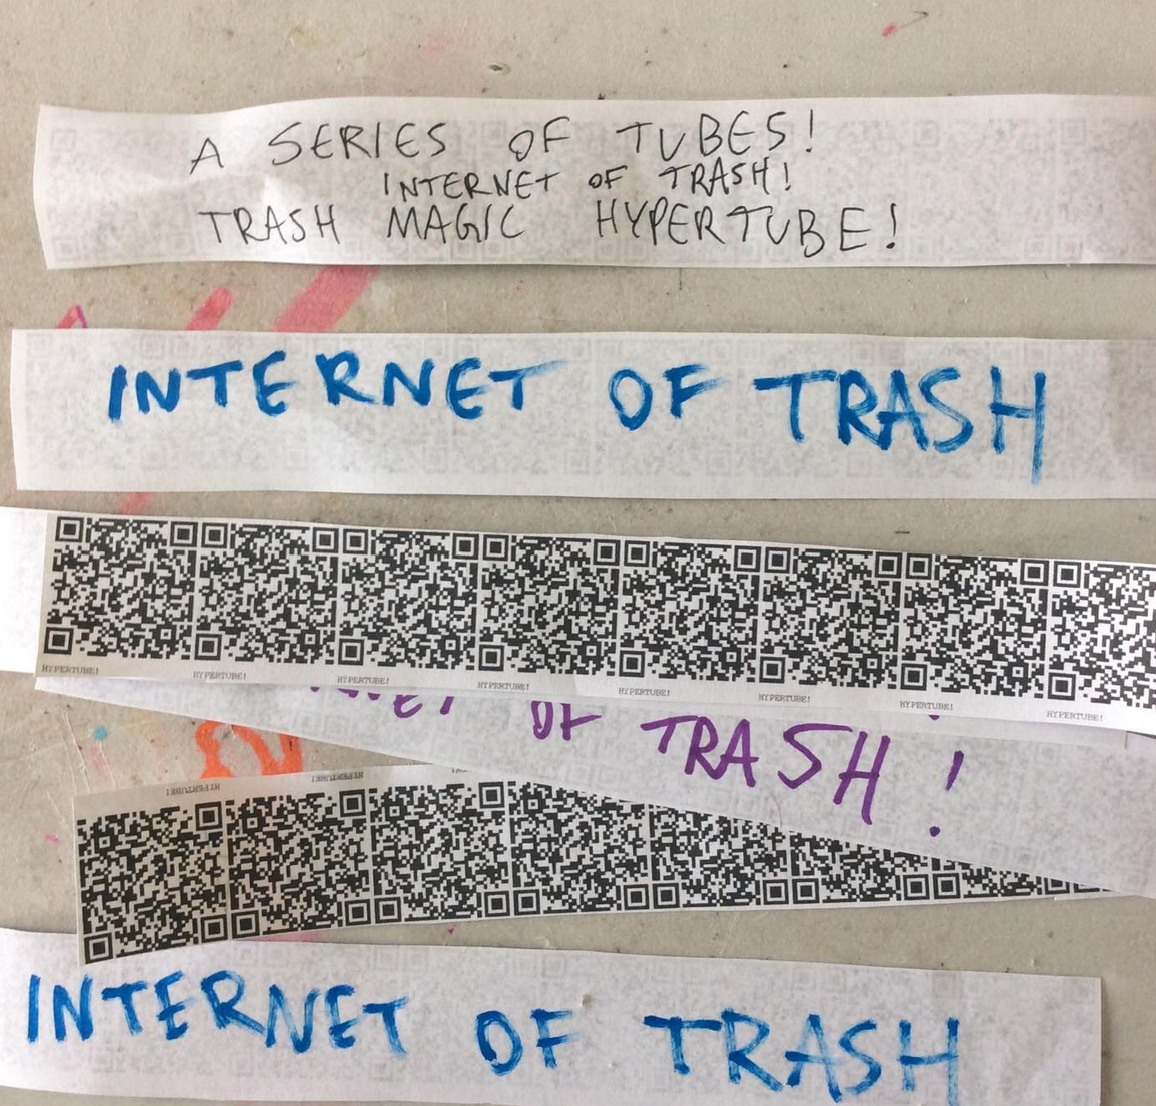 A SERIES OF TUBES!
INTERNET OF TRASH!
TRASH MAGIC HYPERTUBE!
INTERNET OF TRASH
HYPERTUBE! HYPERTUBE! HYPERTUBE! HYPERTUBE! HYPERTUBE! HYPERTUBE! HYPERTUBE! HYPERTUBE!
OF TRASH!
HYPERTUBE! HYPERTUBE!
INTERNET OF TRASH